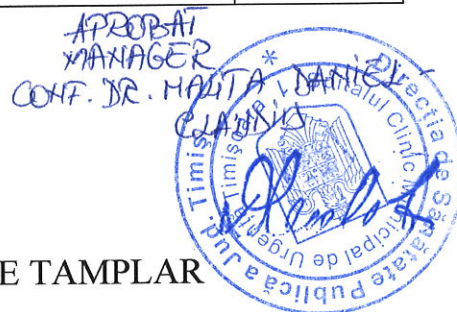 APROBAT
MANAGER
CONF. DR. MALITA DANIEL
CLAUDIU
Direcția de Sănătate Publică a Jud. Timiș
Spitalul Clinic Municipal de Urgență Timișoara
E TAMPLAR